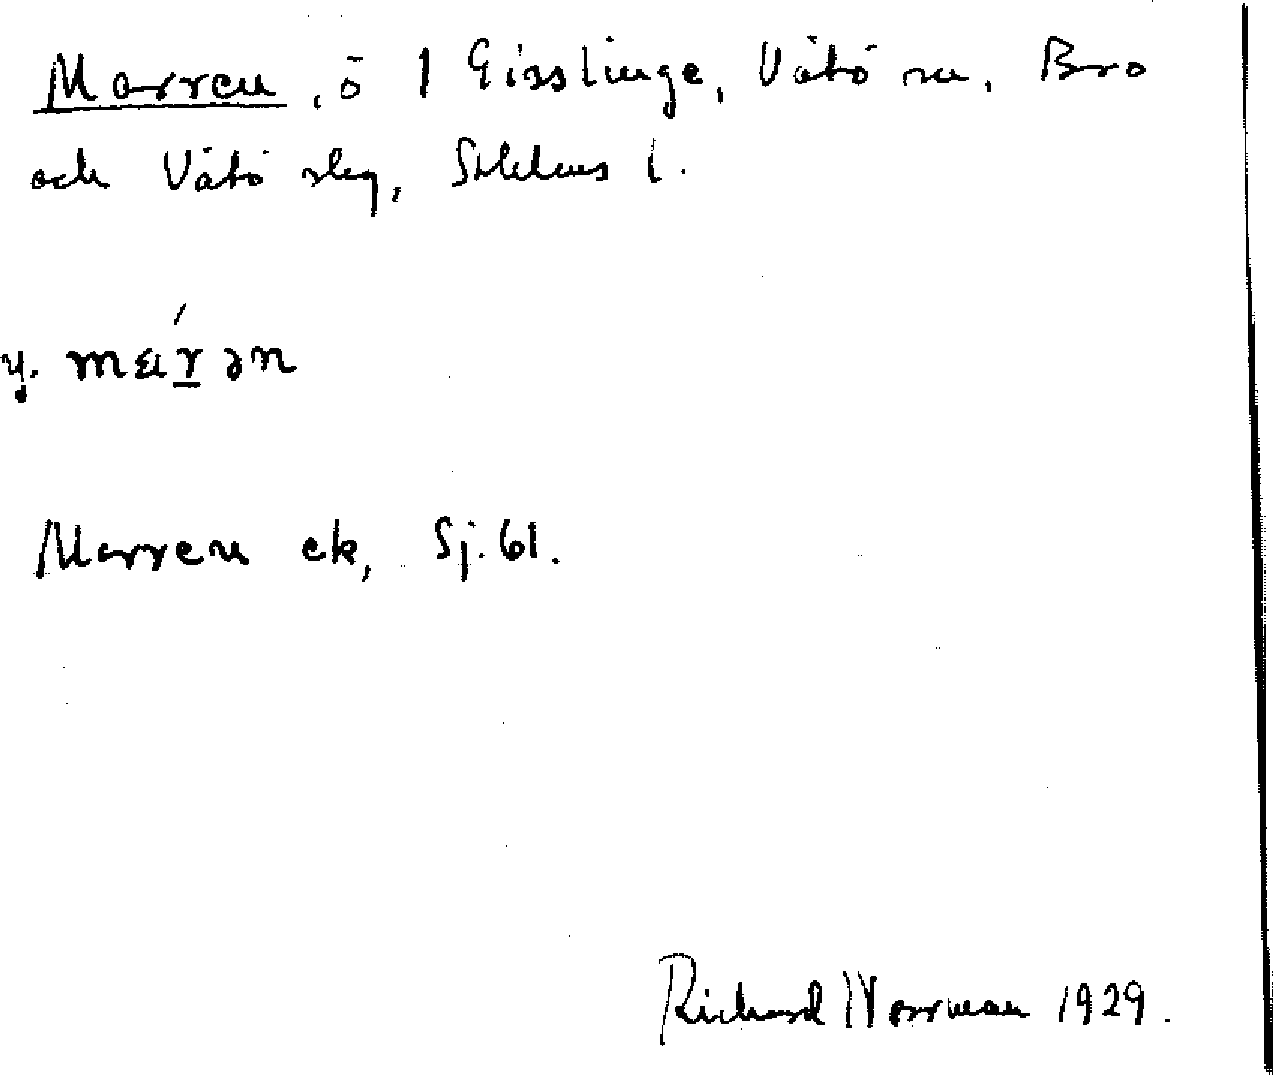 Marren, ö 1 Gisslinge, Vätö sn, Bro
och Vätö skg, Sthlms l.
y. mɑ́rən
Marren ek, Sj. 61.
Richard Norrman 1929.